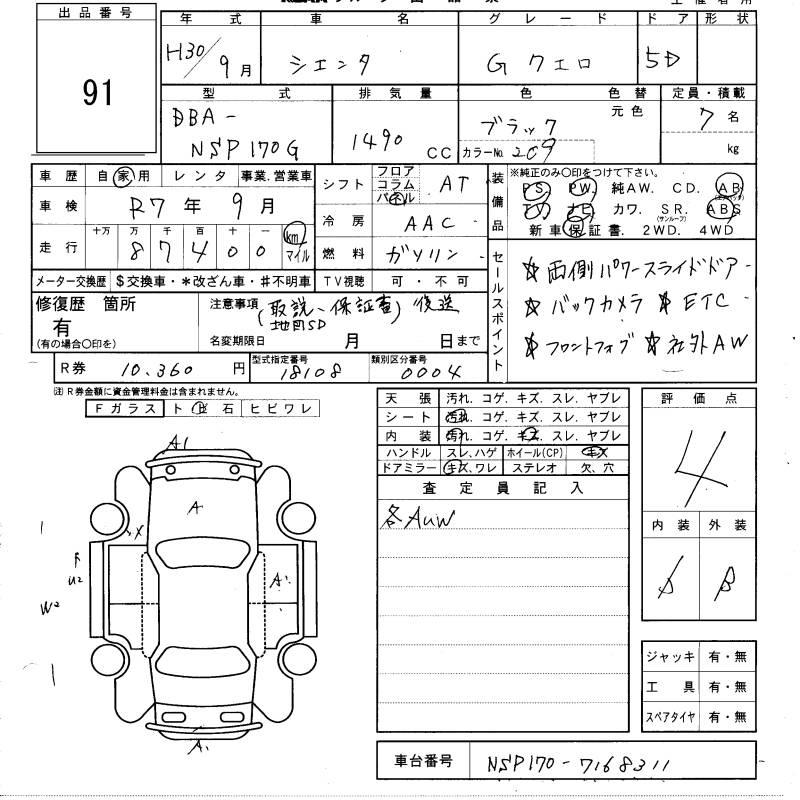 出品番号
91
年 式 車 名 グ レ ー ド ド ア 形 状
H30/9月 シエンタ G クエロ 5D
型 式 排 気 量 色 色 替 定員・積載
DBA- 元色 7名
NSP170G 1490 CC ブラック
カラーNo. 209 kg
車 歴 自 家 用 レ ン タ 事業.営業車
車 検 R7 年 9 月
走 行 十万 万 千 百 十 一 km マイル
8 7 4 0 0
メーター交換歴 $交換車・*改ざん車・#不明車
シフト フロア コラム パネル AT
冷 房 AAC
燃 料 ガソリン
TV視聴 可 ・ 不 可
装備品
※純正のみ○印をつけて下さい。
PS. PW. 純AW. CD. AB (エアバッグ)
カワ. SR. (サンルーフ) ABS
新 車 保 証 書. 2WD. 4WD
セールスポイント
☆ 両側パワースライドドア
☆ バックカメラ ☆ ETC
☆ フロントフォグ ☆ 社外AW
修復歴 箇所
有
(有の場合○印を)
注意事項 (取説、保証書) 後送
地図SD
名変期限日 月 日まで
R券 10.360 円 型式指定番号 18108 類別区分番号 0004
注 R券金額に資金管理料金は含まれません。
Fガラス ト 飛 石 ヒビワレ
天 張 汚れ. コゲ. キズ. スレ. ヤブレ
シート 汚れ. コゲ. キズ. スレ. ヤブレ
内 装 汚れ. コゲ. キズ. スレ. ヤブレ
ハンドル スレ.ハゲ ホイール(CP) キズ
ドアミラー キズ.ワレ ステレオ 欠.穴
査 定 員 記 入
各AUW
評 価 点
4
内 装 外 装
B
A1
A
X
A1
U2
W2
A1
ジャッキ 有・無
工 具 有・無
スペアタイヤ 有・無
車台番号 NSP170-7168311